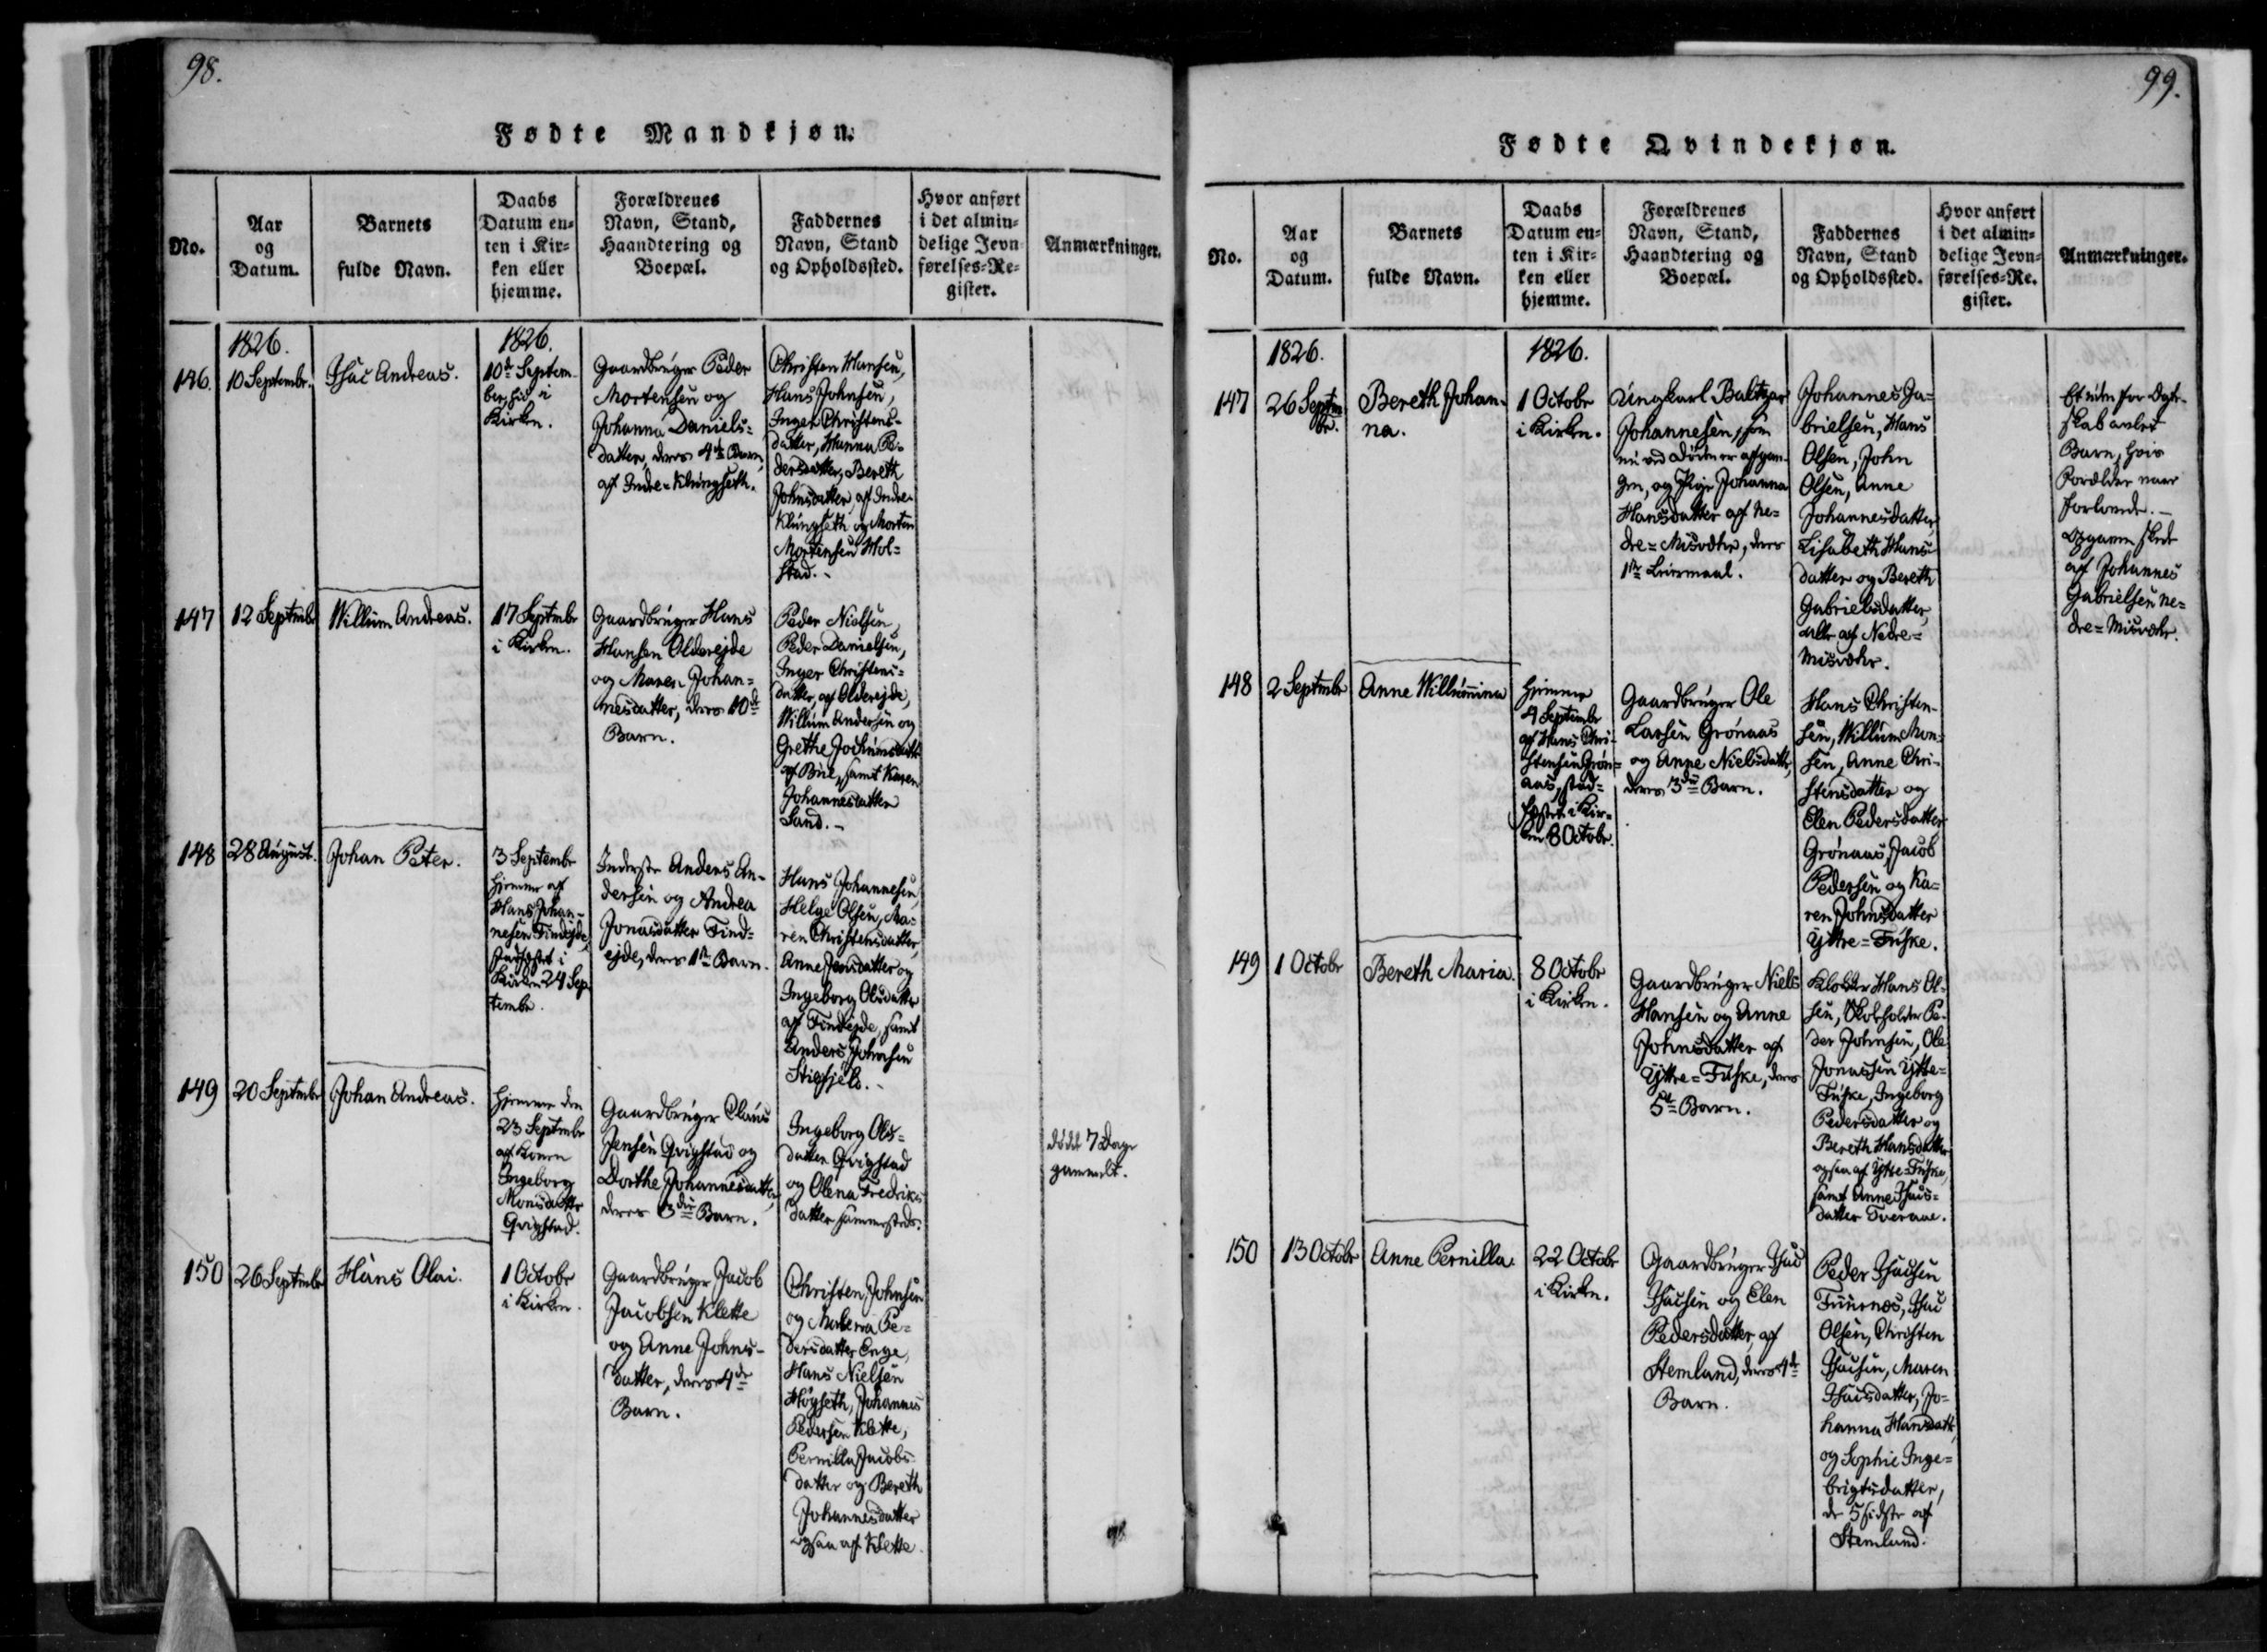 98.
Fødte Mandkjøn.
No.
Aar
og
Datum.
Barnets
fulde Navn.
Daabs
Datum en-
ten i Kir-
ken eller
hjemme.
Forældrenes
Navn, Stand,
Haandtering og
Boepæl.
Faddernes
Navn, Stand
og Opholdssted.
Hvor anført
i det almin-
delige Jevn
førelses-Re-
gister.
Anmærkninger.
1826.
1826.
146.
10 Septembr.
Isac Andreas.
10de Septem-
ber, i
Kirken.
Gaardbruger Peder
Mortensen og
Johanna Daniels-
datter, deres 4de Barn
af Indre-Klungseth.
Christen Hansen,
Hans Johnsen,
Inger Christens-
datter, Hanna Pe-
dersdatter, Bereth
Johnsdatter, af Indre-
Klungseth og Morten
Mortensen Hol-
stad.-
147
12 Septembr
Willum Andreas.
17 Septembr
i Kirken.
Gaardbruger Hans
Hansen Oldereide
og Maren Johan-
nesdatter, deres 10de
Barn.
Peder Nielsen,
Peder Danielsen,
Inger Christens-
datter, af Oldereide,
Willum Andersen og
Grethe Jochumsdatter
af samt Karen
Johannesdatter
Sand.-
148
28 August.
Johan Peter.
3 Septembr
hjemme af
Hans Johan-
nesen Findeide,
stadfæstet i
Kirken 24 Sep-
tembr.
Inderste Anders An-
dersen og Andrea
Jonasdatter Find-
eide, deres 1te Barn.
Hans Johannesen,
Helge Olsen, Ma-
ren Christensdatter,
Anne Jensdatter og
Ingeborg Olsdatter
af Findeide, samt
Anders Johnsen
Stiefjeld.-
149
20 Septembr
Johan Andreas.
hjemme den
23 Septembr
af Konen
Ingeborg
Monsdatter
Qvigstad.
Gaardbruger Claus
Jensen Qvigstad og
Dorthe Johannesdatter,
deres Barn.
Ingeborg Ols-
datter Qvigstad
og Olena Fredriks-
datter sammesteds.
dødt 7 Dage
gammelt.
150
26 Septembr
Hans Olai.
1 Octobr
i Kirken.
Gaardbruger Jacob
Jacobsen Klette
og Anne Johns-
datter, deres 4de
Barn.
Christen Johnsen
og Maberia Pe-
dersdatter Enge,
Hans Nielsen
Høyseth, Johannes
Pedersen Klette,
Pernilla Jacobs-
datter og Bereth
Johannesdatter
ogsaa af Klette.
99.
Fødte Qvindekjøn.
No.
Aar
og
Datum.
Barnets
fulde Navn.
Daabs
Datum en-
ten i Kir-
ken eller
hjemme.
Forældrenes
Navn, Stand,
Haandtering og
Boepæl.
Faddernes
Navn, Stand
og Opholdssted.
Hvor anført
i det almin-
delige Jevn-
førelses-Re-
gister.
Anmærkninger.
1826.
1826.
147
26 Septem
br.
Bereth Johan-
na.
1 Octobr
i Kirken.
Ungkarl Baltzar
Johannesen, som
nu ved Døden er afgan-
gen, og Pige Johanna
Hansdatter af Ne-
dre-Misvær, deres
1te Leiermaal.
Johannes Ga-
brielsen, Hans
Olsen, John
Olsen, Anne
Johannesdatter,
Lisabeth Hans-
datter og Bereth
Gabrielsdatter,
alle af Nedre-
Misvær.
Et uden for Ægte-
skab avlet
Barn, hvis
Forældre vare
forlovede.-
Opgaven skede
af Johannes
Gabrielsen Ne-
dre-Misvær.
148
2 Septembr
Anne Willumina
hjemme
4 Septembr
af Hans Chri-
stensen Grøn-
aas, stad-
fæstet i Kir-
ken 8 Octobr.
Gaardbruger Ole
Larsen Grønaas
og Anne Nielsdatter,
deres 3die Barn.
Hans Christen-
sen, Willum Mon-
sen, Anne Chri-
stensdatter og
Elen Pedersdatter
Grønaas, Jacob
Pedersen og Ka-
ren Johnsdatter
Yttre-Fuske.
149
1 Octobr
Bereth Maria.
8 Octobr
i Kirken.
Gaardbruger Niels
Hansen og Anne
Johnsdatter af
Yttre-Fuske, deres
5te Barn.
Klokker Hans Ol-
sen, Skoleholder Pe-
der Johnsen, Ole
Jonassen Yttre-
Fuske, Ingeborg
Pedersdatter og
Bereth Hansdatter
ogsaa af Yttre-Fuske,
samt Anne Isacs-
datter Tveraae.
150
13 Octobr
Anne Pernilla.
22 Octobr
i Kirken.
Gaardbruger Isac
Isacsen og Elen
Pedersdatter, af
Stemland, deres 4de
Barn.
Peder Isacsen
Tuurnæs, Isac
Olsen, Christen
Isacsen, Maren
Isacsdatter, Jo-
hanna Hansdatter,
og Sophie Inge-
brigtsdatter,
de 5 sidste af
Stemland.